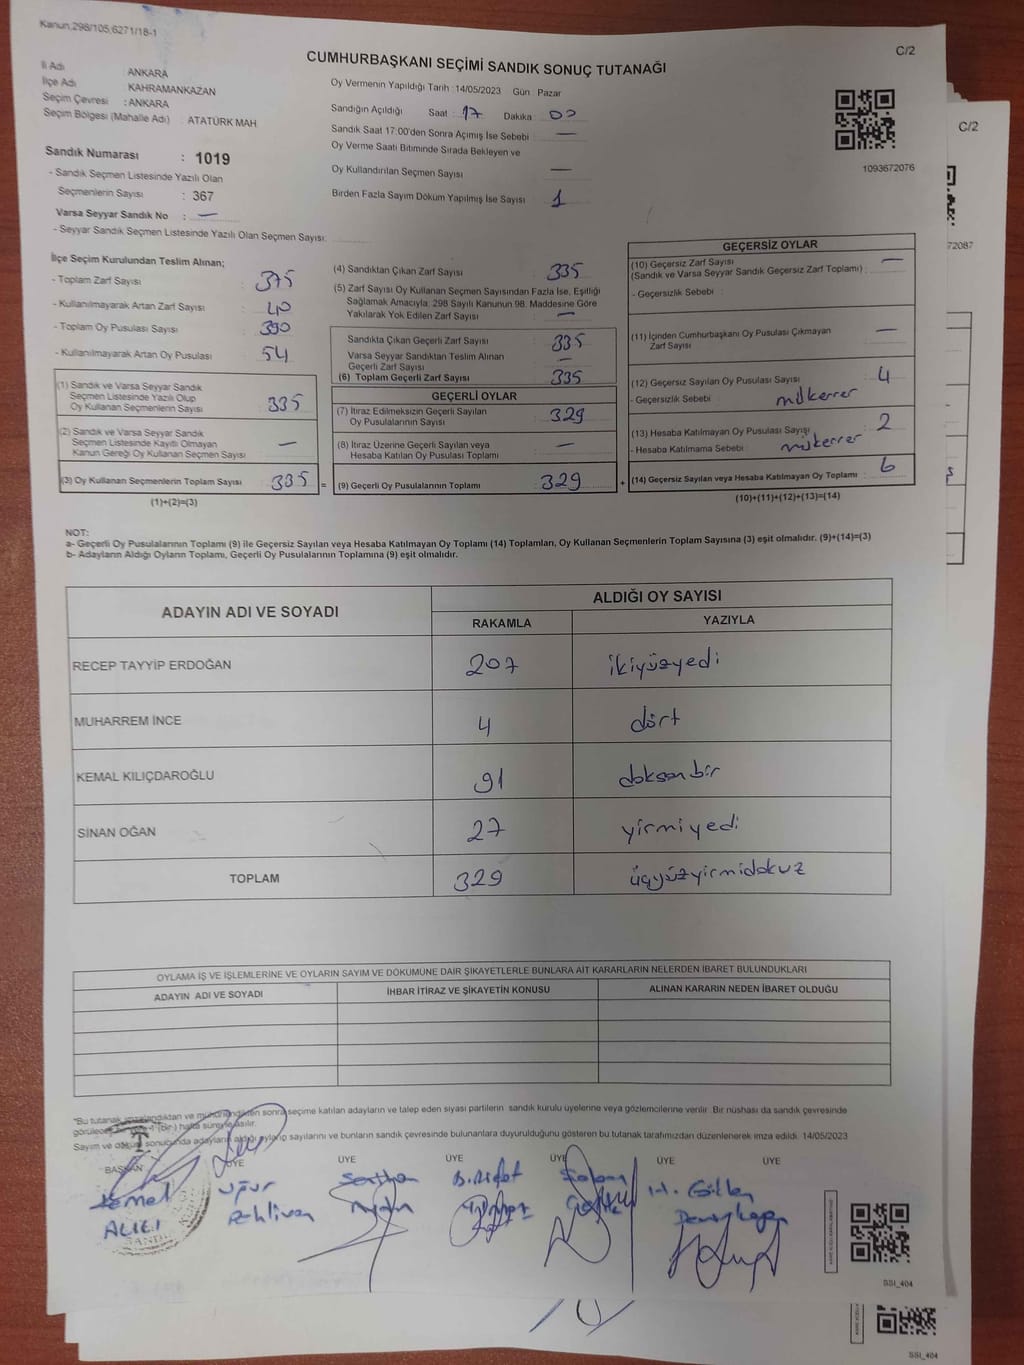 Kanun,298/105,6271/18-1
C/2
CUMHURBAŞKANI SEÇİMİ SANDIK SONUÇ TUTANAĞI
İl Adı ANKARA
İlçe Adı KAHRAMANKAZAN
Seçim Çevresi : ANKARA
Seçim Bölgesi (Mahalle Adı) : ATATÜRK MAH
Sandık Numarası : 1019
- Sandık Seçmen Listesinde Yazılı Olan
Seçmenlerin Sayısı : 367
Varsa Seyyar Sandık No : —
- Seyyar Sandık Seçmen Listesinde Yazılı Olan Seçmen Sayısı:
Oy Vermenin Yapıldığı Tarih : 14/05/2023 Gün Pazar
Sandığın Açıldığı Saat : 17 Dakika 00
Sandık Saat 17:00'den Sonra Açımış İse Sebebi —
Oy Verme Saati Bitiminde Sırada Bekleyen ve
Oy Kullandırılan Seçmen Sayısı —
Birden Fazla Sayım Döküm Yapılmış İse Sayısı 1
1093672076
C/2
72087
İlçe Seçim Kurulundan Teslim Alınan;
- Toplam Zarf Sayısı : 375
- Kullanılmayarak Artan Zarf Sayısı : 40
- Toplam Oy Pusulası Sayısı : 390
- Kullanılmayarak Artan Oy Pusulası : 54
(1) Sandık ve Varsa Seyyar Sandık
Seçmen Listesinde Yazılı Olup
Oy Kullanan Seçmenlerin Sayısı : 335
(2) Sandık ve Varsa Seyyar Sandık
Seçmen Listesinde Kayıtlı Olmayan
Kanun Gereği Oy Kullanan Seçmen Sayısı : —
(3) Oy Kullanan Seçmenlerin Toplam Sayısı : 335 =
(1)+(2)=(3)
(4) Sandıktan Çıkan Zarf Sayısı : 335
(5) Zarf Sayısı Oy Kullanan Seçmen Sayısından Fazla İse, Eşitliği
Sağlamak Amacıyla; 298 Sayılı Kanunun 98. Maddesine Göre
Yakılarak Yok Edilen Zarf Sayısı : —
Sandıkta Çıkan Geçerli Zarf Sayısı : 335
Varsa Seyyar Sandıktan Teslim Alınan
Geçerli Zarf Sayısı : —
(6) Toplam Geçerli Zarf Sayısı : 335
GEÇERLİ OYLAR
(7) İtiraz Edilmeksizin Geçerli Sayılan
Oy Pusulalarının Sayısı : 329
(8) İtiraz Üzerine Geçerli Sayılan veya
Hesaba Katılan Oy Pusulası Toplamı : —
(9) Geçerli Oy Pusulalarının Toplamı : 329 +
GEÇERSİZ OYLAR
(10) Geçersiz Zarf Sayısı —
(Sandık ve Varsa Seyyar Sandık Geçersiz Zarf Toplamı) :
- Geçersizlik Sebebi :
(11) İçinden Cumhurbaşkanı Oy Pusulası Çıkmayan
Zarf Sayısı : —
(12) Geçersiz Sayılan Oy Pusulası Sayısı : 4
- Geçersizlik Sebebi : mükerrer
(13) Hesaba Katılmayan Oy Pusulası Sayışı : 2
- Hesaba Katılmama Sebebi : mükerrer
(14) Geçersiz Sayılan veya Hesaba Katılmayan Oy Toplamı : 6
(10)+(11)+(12)+(13)=(14)
NOT:
a- Geçerli Oy Pusulalarının Toplamı (9) ile Geçersiz Sayılan veya Hesaba Katılmayan Oy Toplamı (14) Toplamları, Oy Kullanan Seçmenlerin Toplam Sayısına (3) eşit olmalıdır. (9)+(14)=(3)
b- Adayların Aldığı Oyların Toplamı, Geçerli Oy Pusulalarının Toplamına (9) eşit olmalıdır.
ADAYIN ADI VE SOYADI ALDIĞI OY SAYISI
RAKAMLA YAZIYLA
RECEP TAYYİP ERDOĞAN 207 ikiyüzyedi
MUHARREM İNCE 4 dört
KEMAL KILIÇDAROĞLU 91 doksanbir
SİNAN OĞAN 27 yirmiyedi
TOPLAM 329 üçyüzyirmidokuz
OYLAMA İŞ VE İŞLEMLERİNE VE OYLARIN SAYIM VE DÖKÜMÜNE DAİR ŞİKAYETLERLE BUNLARA AİT KARARLARIN NELERDEN İBARET BULUNDUKLARI
ADAYIN ADI VE SOYADI İHBAR İTİRAZ VE ŞİKAYETİN KONUSU ALINAN KARARIN NEDEN İBARET OLDUĞU
*Bu tutanak imzalandıktan ve mühürlendikten sonra seçime katılan adayların ve talep eden siyasi partilerin sandık kurulu üyelerine veya gözlemcilerine verilir. Bir nüshası da sandık çevresinde
görülecek 1 (bir) hafta süreyle asılır.
Sayım ve döküm sonucunda adayların aldığı oyların sayılarını ve bunların sandık çevresinde bulunanlara duyurulduğunu gösteren bu tutanak tarafımızdan düzenlenerek imza edildi. 14/05/2023
BAŞKAN ÜYE ÜYE ÜYE ÜYE ÜYE ÜYE
Kemal Uğur
ALICI Pehlivan
SSI_404
SSI_404